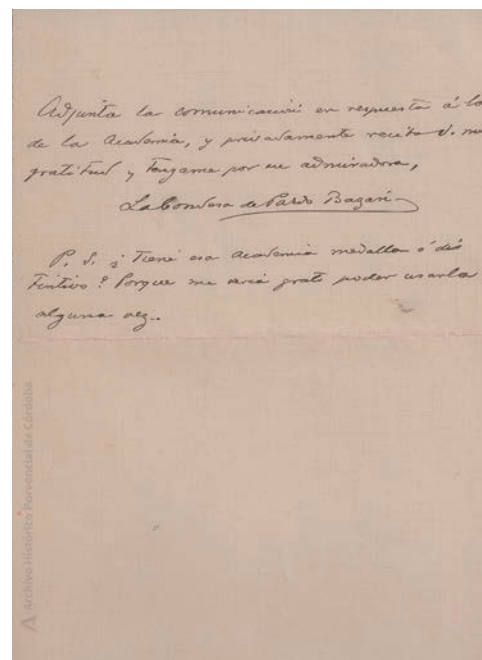 Adjunta la comunicación en respuesta á la
de la Academia, y privadamente reciba V. mi
gratitud y téngame por su admiradora,
La Condesa de Pardo Bazán
P. S. ¿Tiene esa Academia medalla ó dis
tintivo? Porque me sería grato poder usarla
alguna vez.
A Archivo Histórico Porvoncial de Córdoba